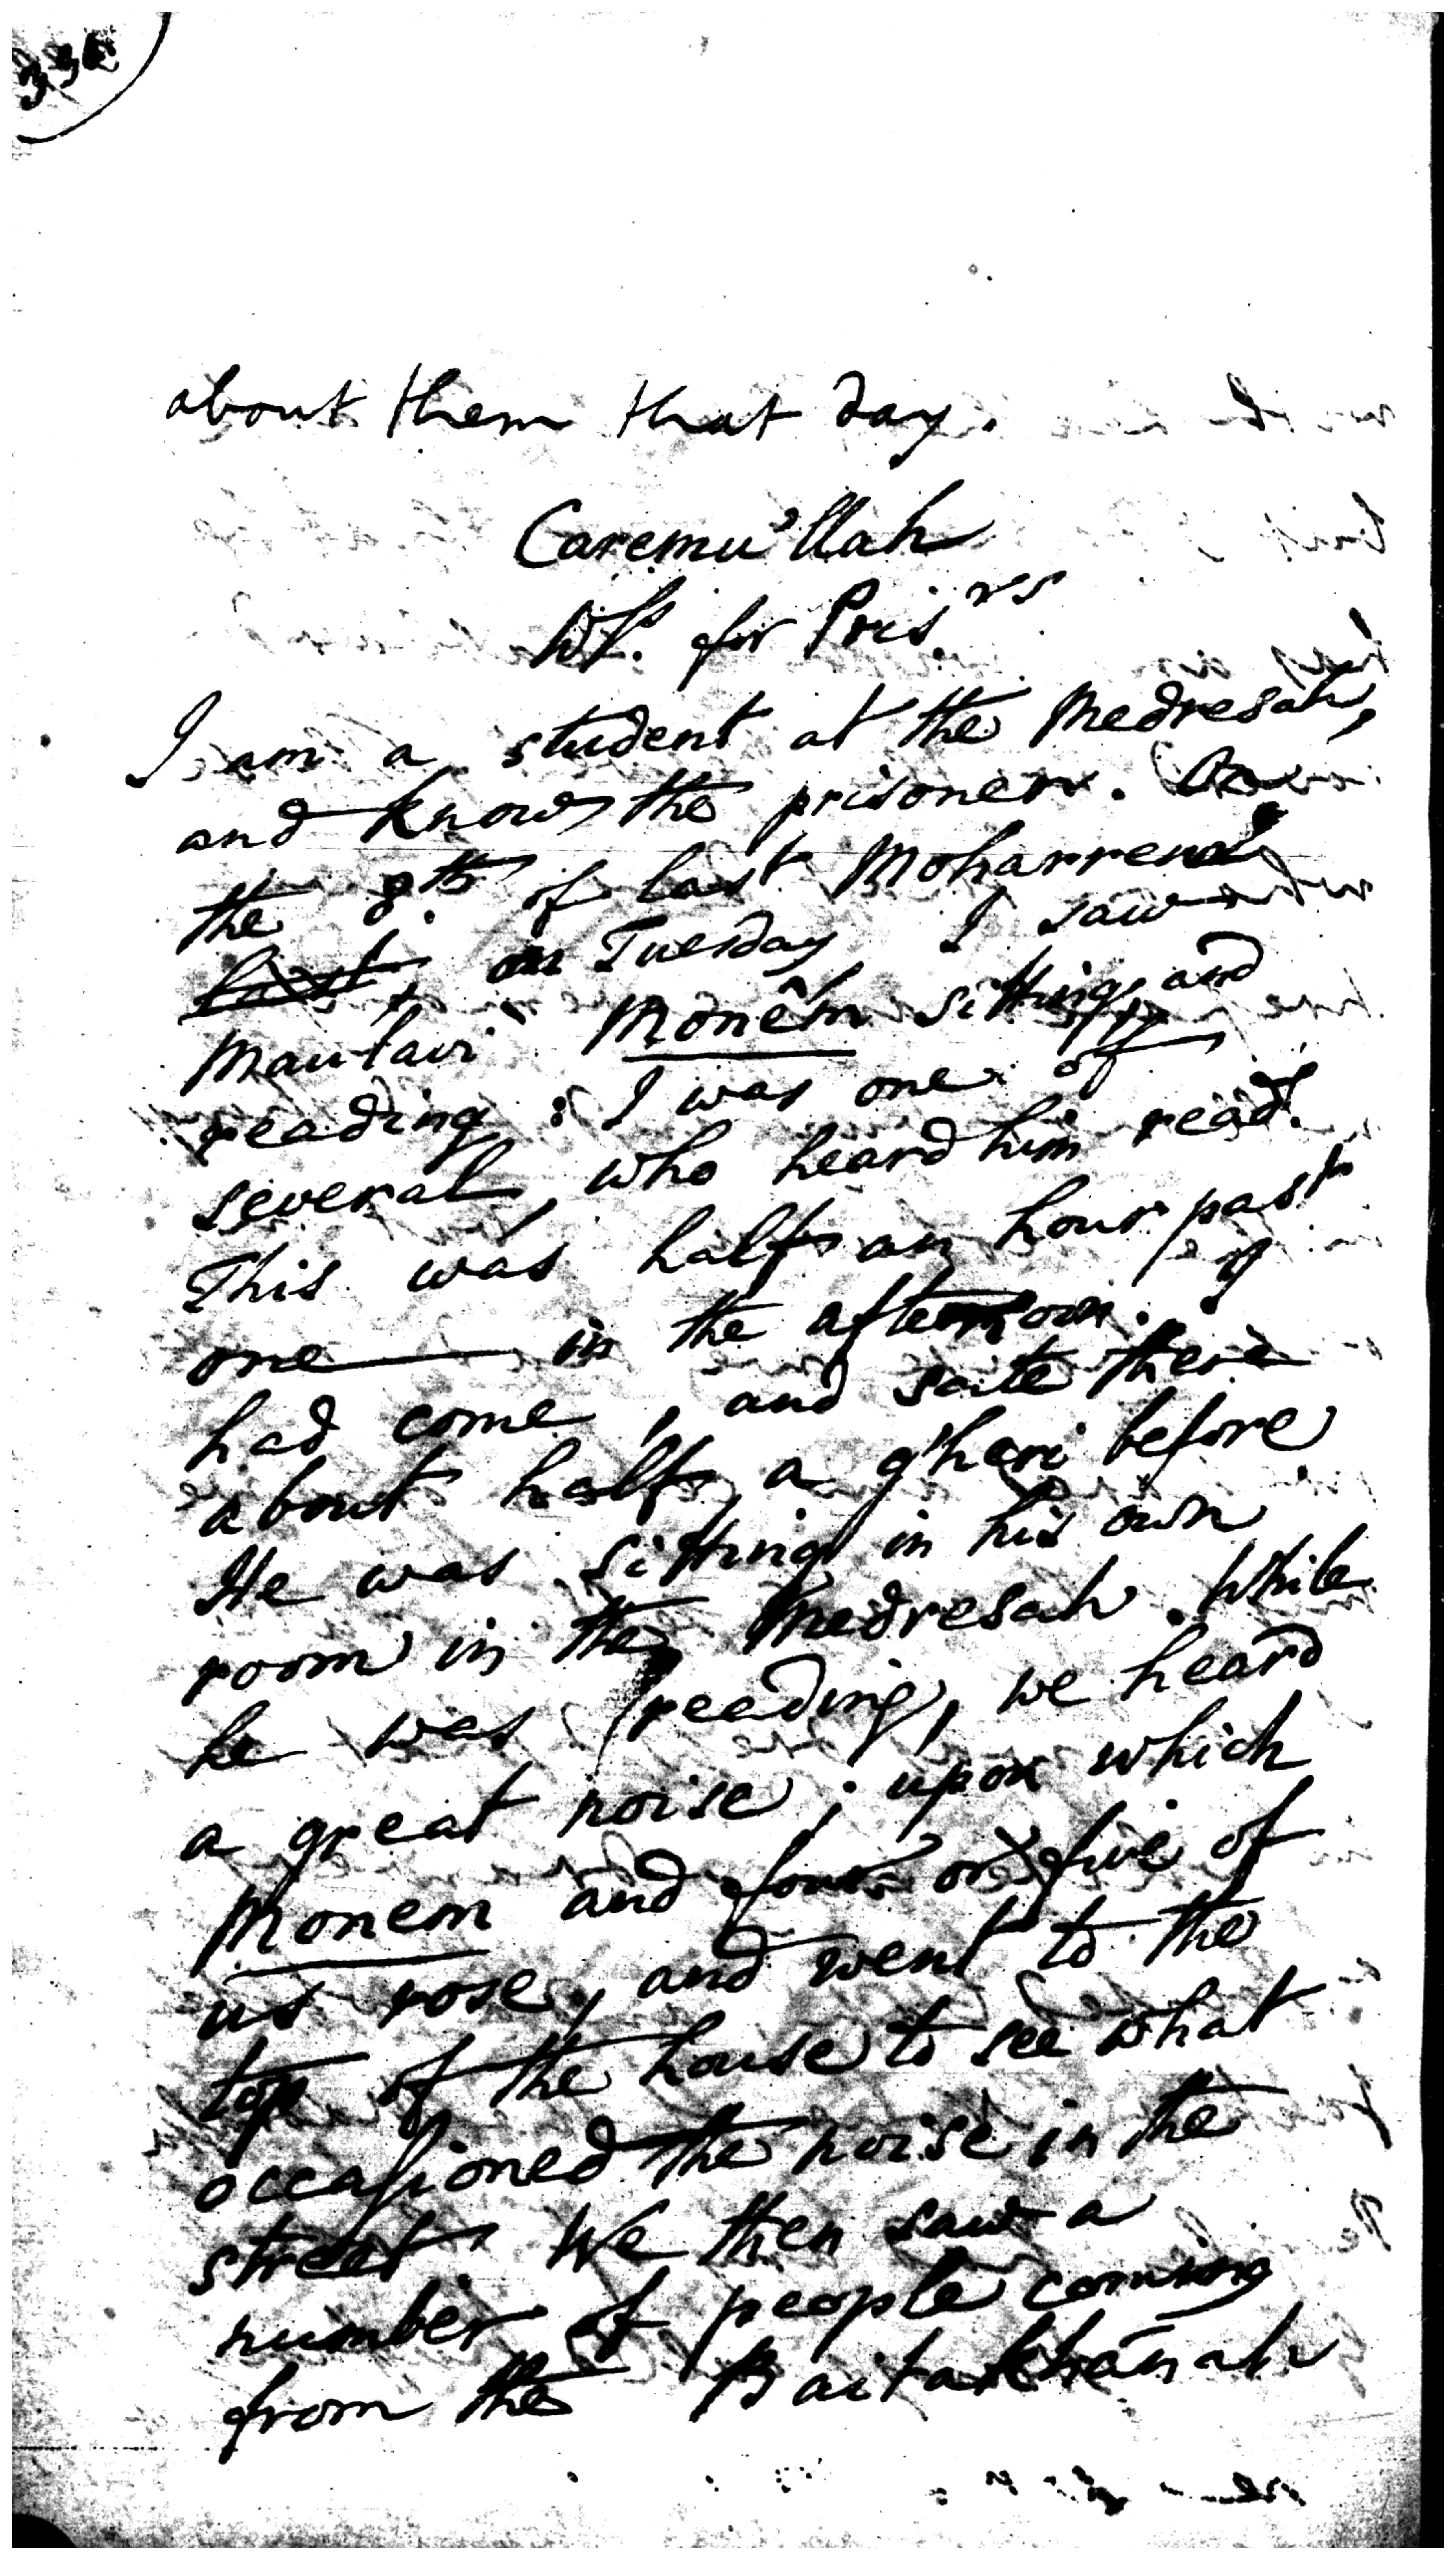 336
about them that day.
Caremu'llah
Ws. for Pris.rs
I am a student at the Medresah,
and know the prisoner. On
the 8th of last Moharrem
last, on Tuesday I saw
Maulavi Monêm sitting, and
reading : I was one of
several, who heard him read.
This was half an hour past
one in the afternoon. I
had come, and sate there
about half a g'hari before
He was sitting in his own
room in the Medresah. While
he was reading, we heard
a great noise; upon which
Monem and four or five of
us rose, and went to the
top of the house to see what
occasioned the noise in the
street. We then saw a
number of people coming
from the Baitakkhánah